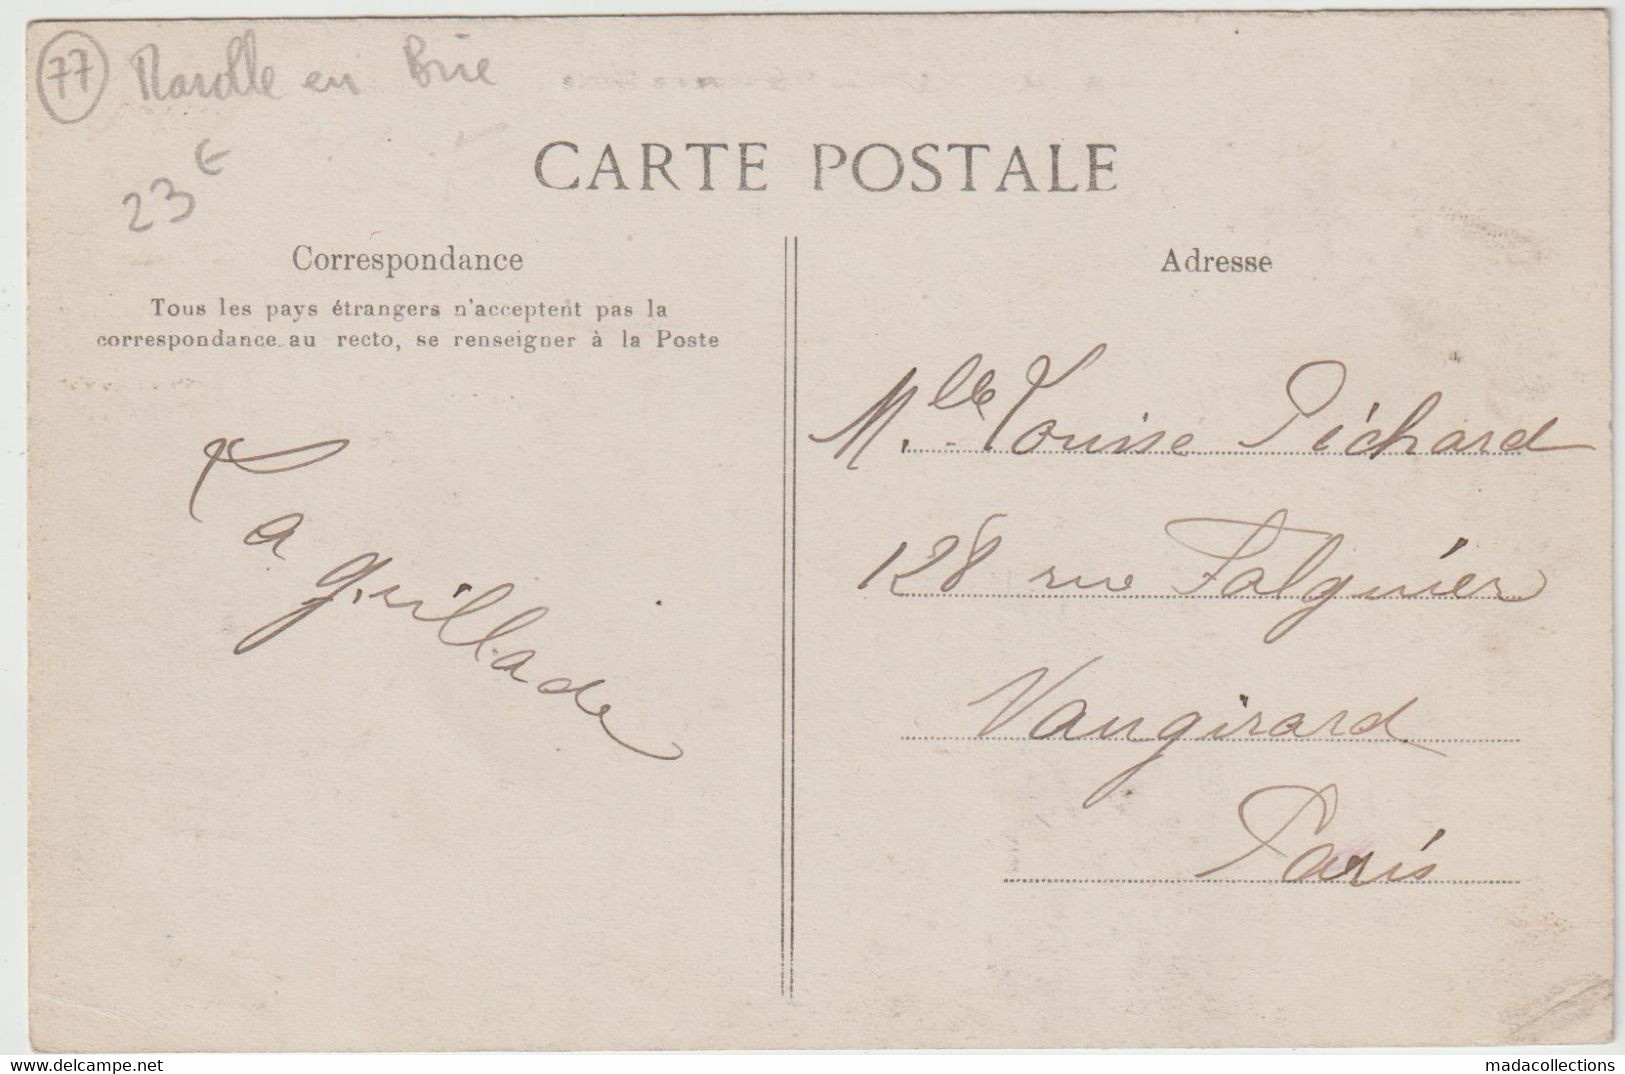 77 Marolle en Brie
23 €
CARTE POSTALE
Correspondance
Tous les pays étrangers n'acceptent pas la
correspondance au recto, se renseigner à la Poste
La
guillade
Adresse
Mlle Louise Pichard
128 rue Falguier
Vaugirard
Paris
www.delcampe.net
madacollections